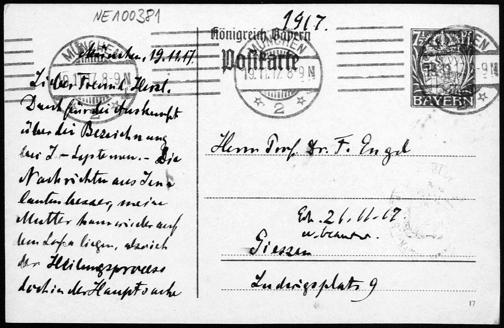 NE100381
1917.
Königreich Bayern
Postkarte
MÜNCHEN
19.11.17. 8-9 N
2
MÜNCHEN
19.11.17. 8-9 N
2
BAYERN
München, 19.11.17.
Lieber Freund,
Dank für die Auskunft
über die Bezeichnung
bei J-Systemen. - Die
Nachrichten aus Jena
lauten besser, meine
Mutter kann wieder auf
dem Sofa liegen,
der Heilungsprocess
doch in der Hauptsache
Herrn Prof. Dr. F. Engel
Erh. 26.11.17
u. beantw.
Giessen
Ludwigsplatz 9
17